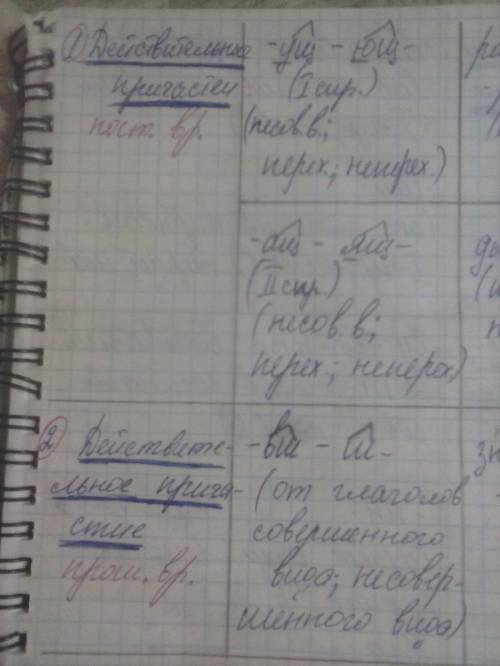 ① Действительное
причастие
наст. вр.
-ущ- -ющ-
(I спр.)
(несов. в.;
перех.; неперех.)
-ащ- -ящ-
(II спр.)
(несов. в.;
перех.; неперех)
② Действите-
льное прича-
стие
прош. вр.
-вш- -ш-
(от глаголов
совершенного
вида; несовер-
шенного вида)